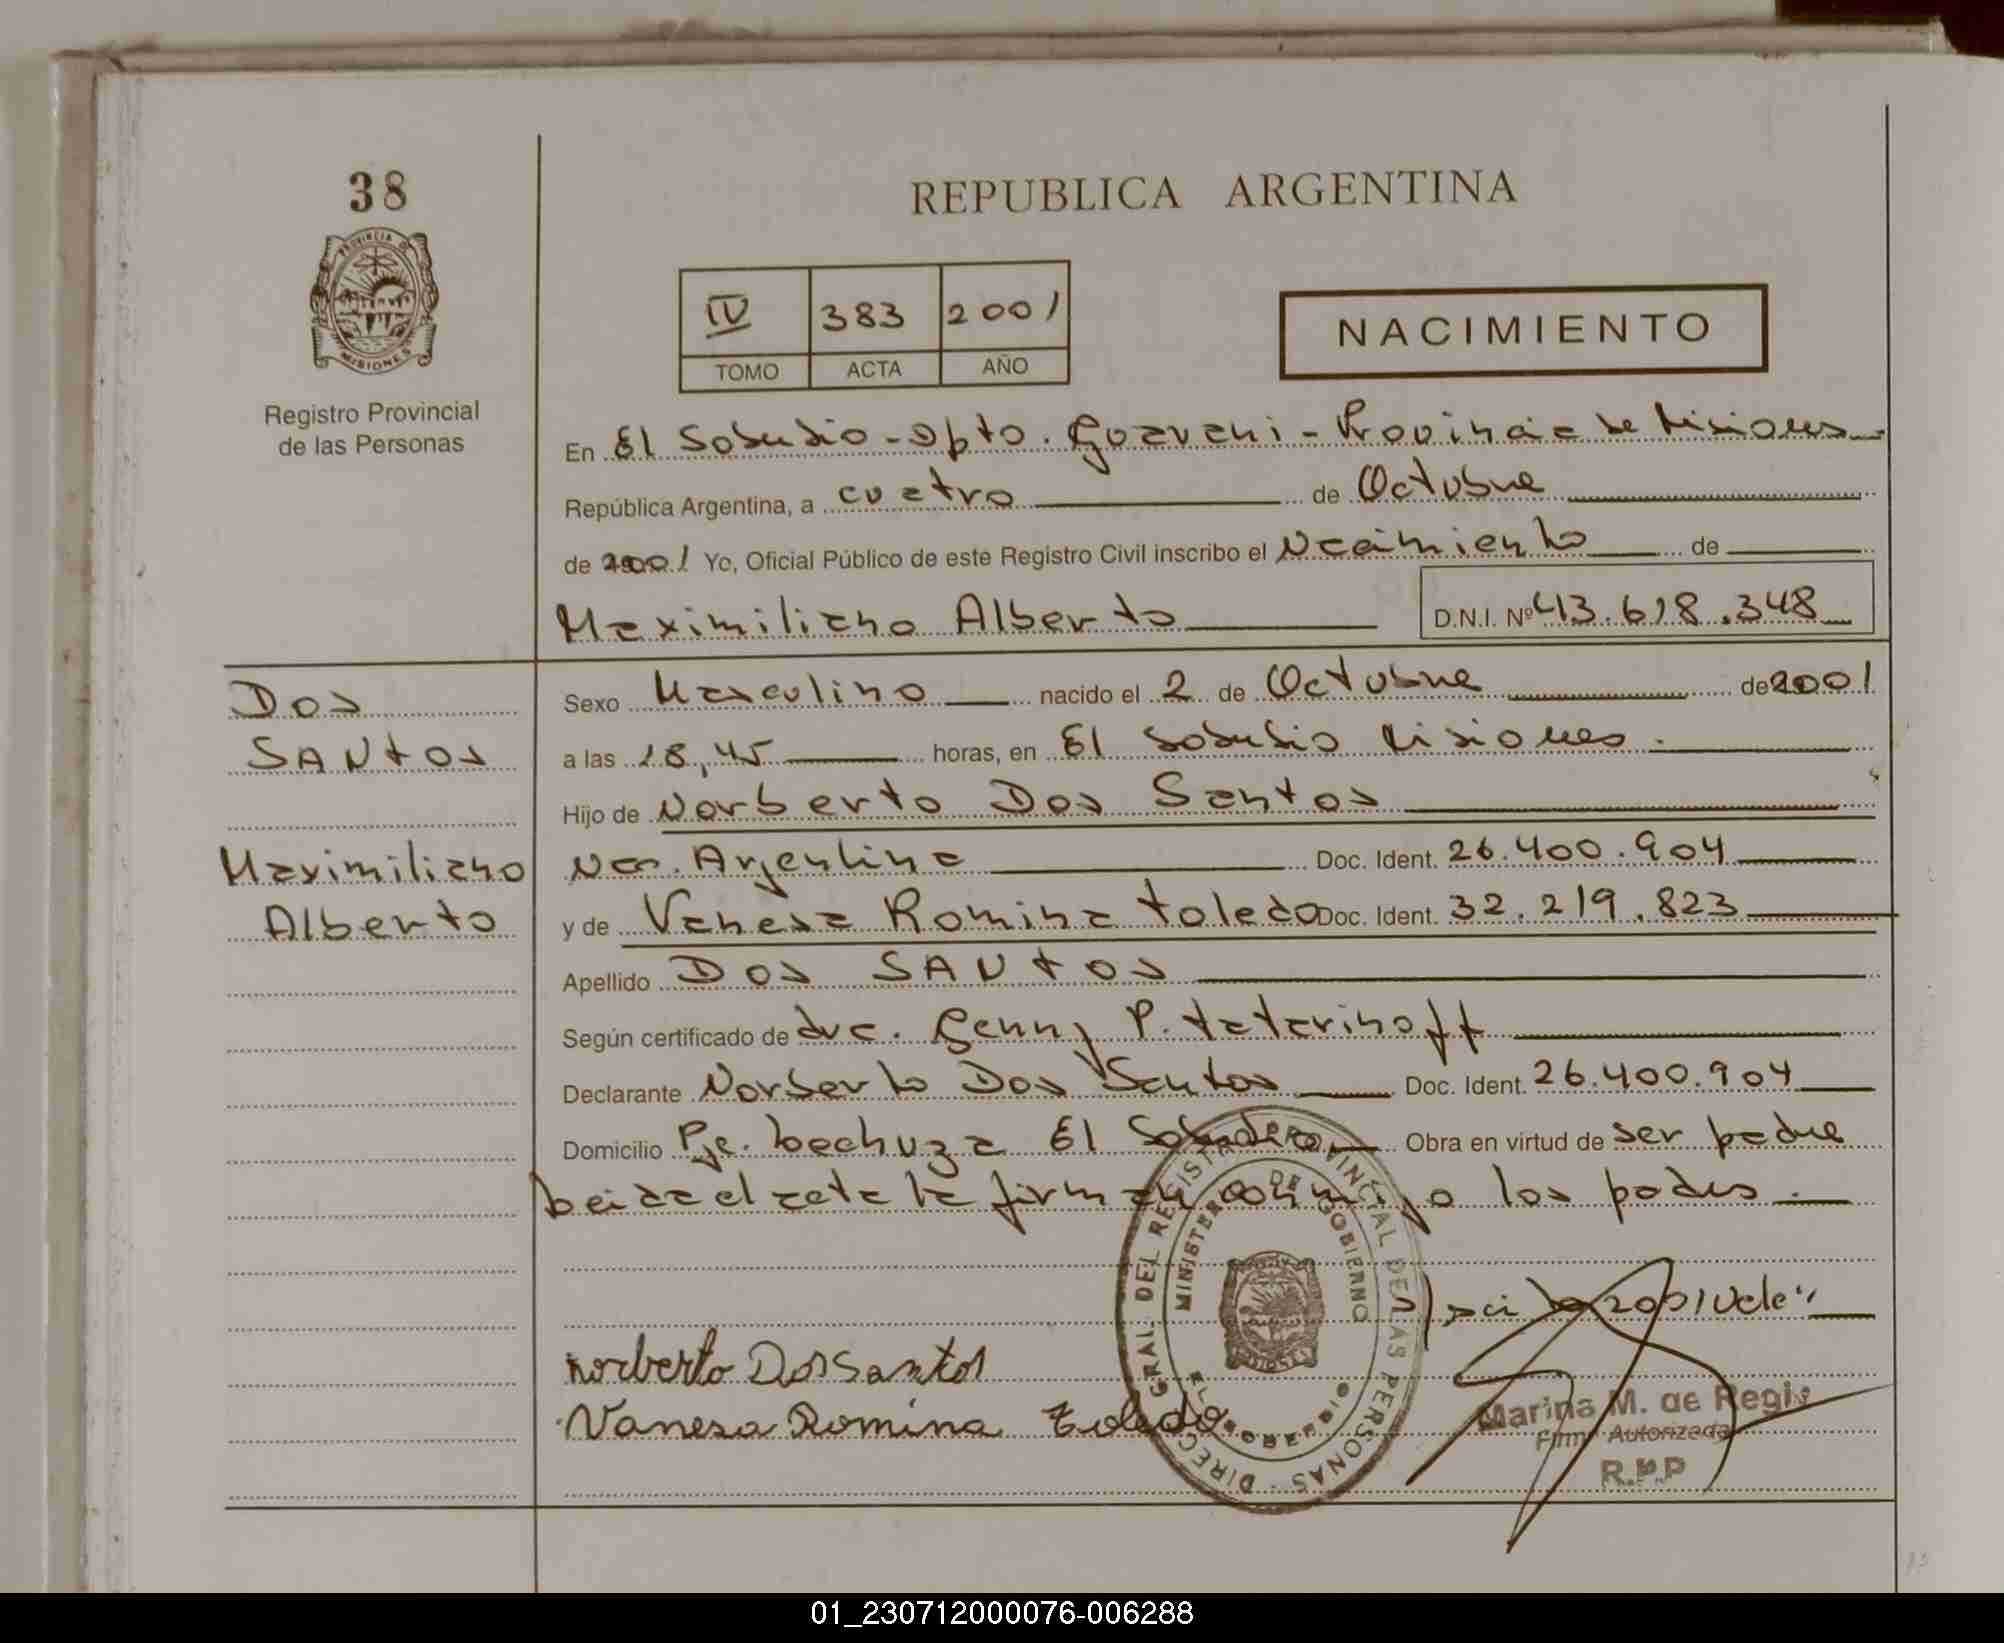 38
PROVINCIA DE
MISIONES
Registro Provincial
de las Personas
REPUBLICA ARGENTINA
IV 383 2001
TOMO ACTA AÑO
NACIMIENTO
En El Soberbio - Dpto. Guarani - Provincia de Misiones
República Argentina, a cuatro de Octubre
de 2001 Yo, Oficial Público de este Registro Civil inscribo el Nacimiento de
Maximiliano Alberto D.N.I. Nº 43.618.348
DOS
SANTOS
Maximiliano
Alberto
Sexo Masculino nacido el 2 de Octubre de 2001
a las 18,45 horas, en El Soberbio Misiones.
Hijo de Norberto Dos Santos
Nac. Argentina Doc. Ident. 26.400.904
y de Vanesa Romina Toledo Doc. Ident. 32.219.823
Apellido DOS SANTOS
Según certificado de Genny P. Tatarinoff
Declarante Norberto Dos Santos Doc. Ident. 26.400.904
Domicilio Pje. Lechuza El Soberbio Obra en virtud de ser padre
Leida el acta la firman conmigo los padres.
2001 Vale"
Norberto Dos Santos
Vanesa Romina Toledo
DIRECC. GRAL. DEL REGISTRO PROVINCIAL DE LAS PERSONAS
MINISTERIO DE GOBIERNO
EL SOBERBIO
MISIONES
Marina M. de Regis
Firma Autorizada
R.P.P
01_230712000076-006288